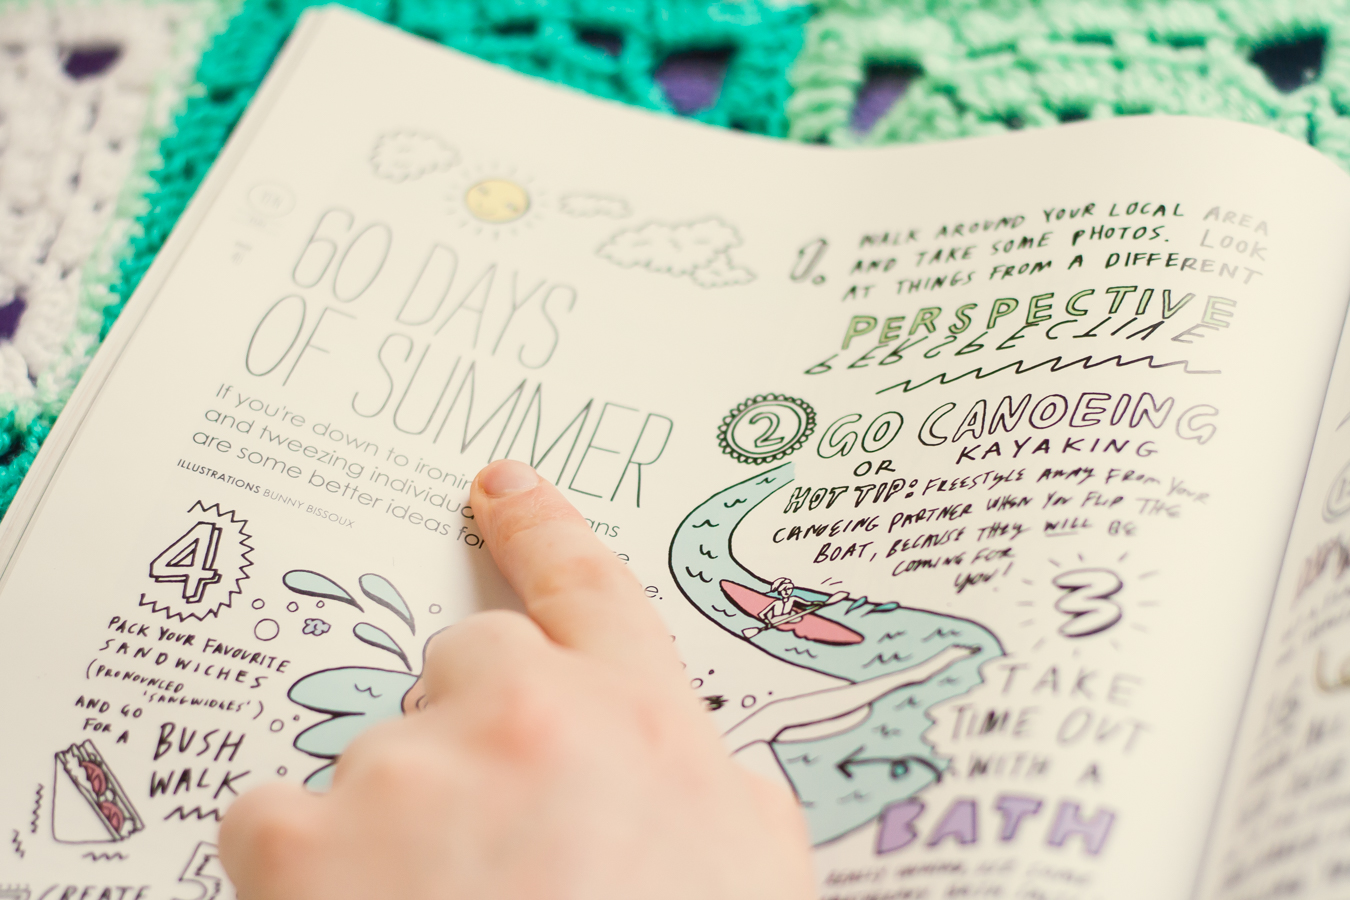 60 DAYS
OF SUMMER
If you're down to ironin
and tweezing individu ans
are some better ideas for
ILLUSTRATIONS BUNNY BISSOUX
1.
WALK AROUND YOUR LOCAL AREA
AND TAKE SOME PHOTOS. LOOK
AT THINGS FROM A DIFFERENT
PERSPECTIVE
PERSPECTIVE
2 GO CANOEING
OR KAYAKING
HOT TIP: FREESTYLE AWAY FROM YOUR
CANOEING PARTNER WHEN YOU FLIP THE
BOAT, BECAUSE THEY WILL BE
COMING FOR
YOU!
3
TAKE
TIME OUT
WITH A
BATH
4
PACK YOUR FAVOURITE
SANDWICHES
(PRONOUNCED
'SANGWIDGES')
AND GO
FOR A
BUSH
WALK
5
CREATE